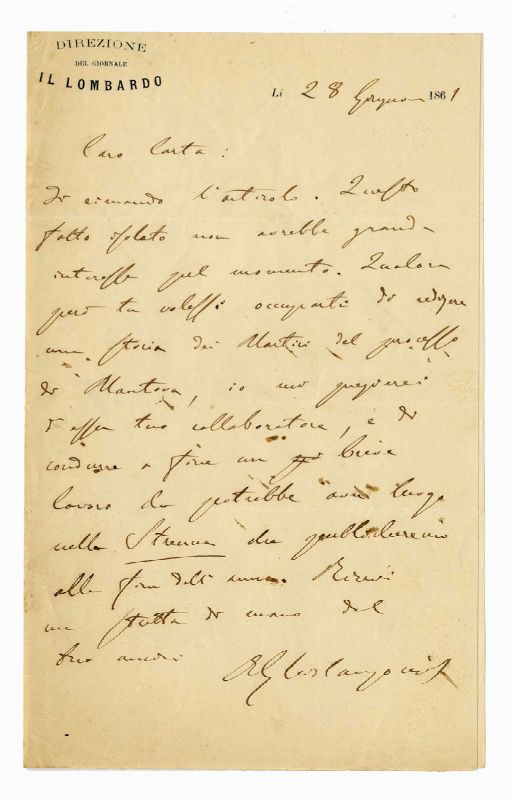 DIREZIONE
DEL GIORNALE
IL LOMBARDO
Li 28 Giugno 1861
Caro Carta:
Ti rimando l'articolo. Questo
fatto isolato non avrebbe grande
interesse pel momento. Qualora
però tu volessi occuparti di redigere
una storia dei Martiri del processo
di Mantova, io mi pregierei
d'esser tuo collaboratore, e di
condurre a fine un breve
lavoro che potrebbe aver luogo
nella Strenna che pubblicheremo
alla fine dell'anno. Ricevi
una stretta di mano dal
tuo amico